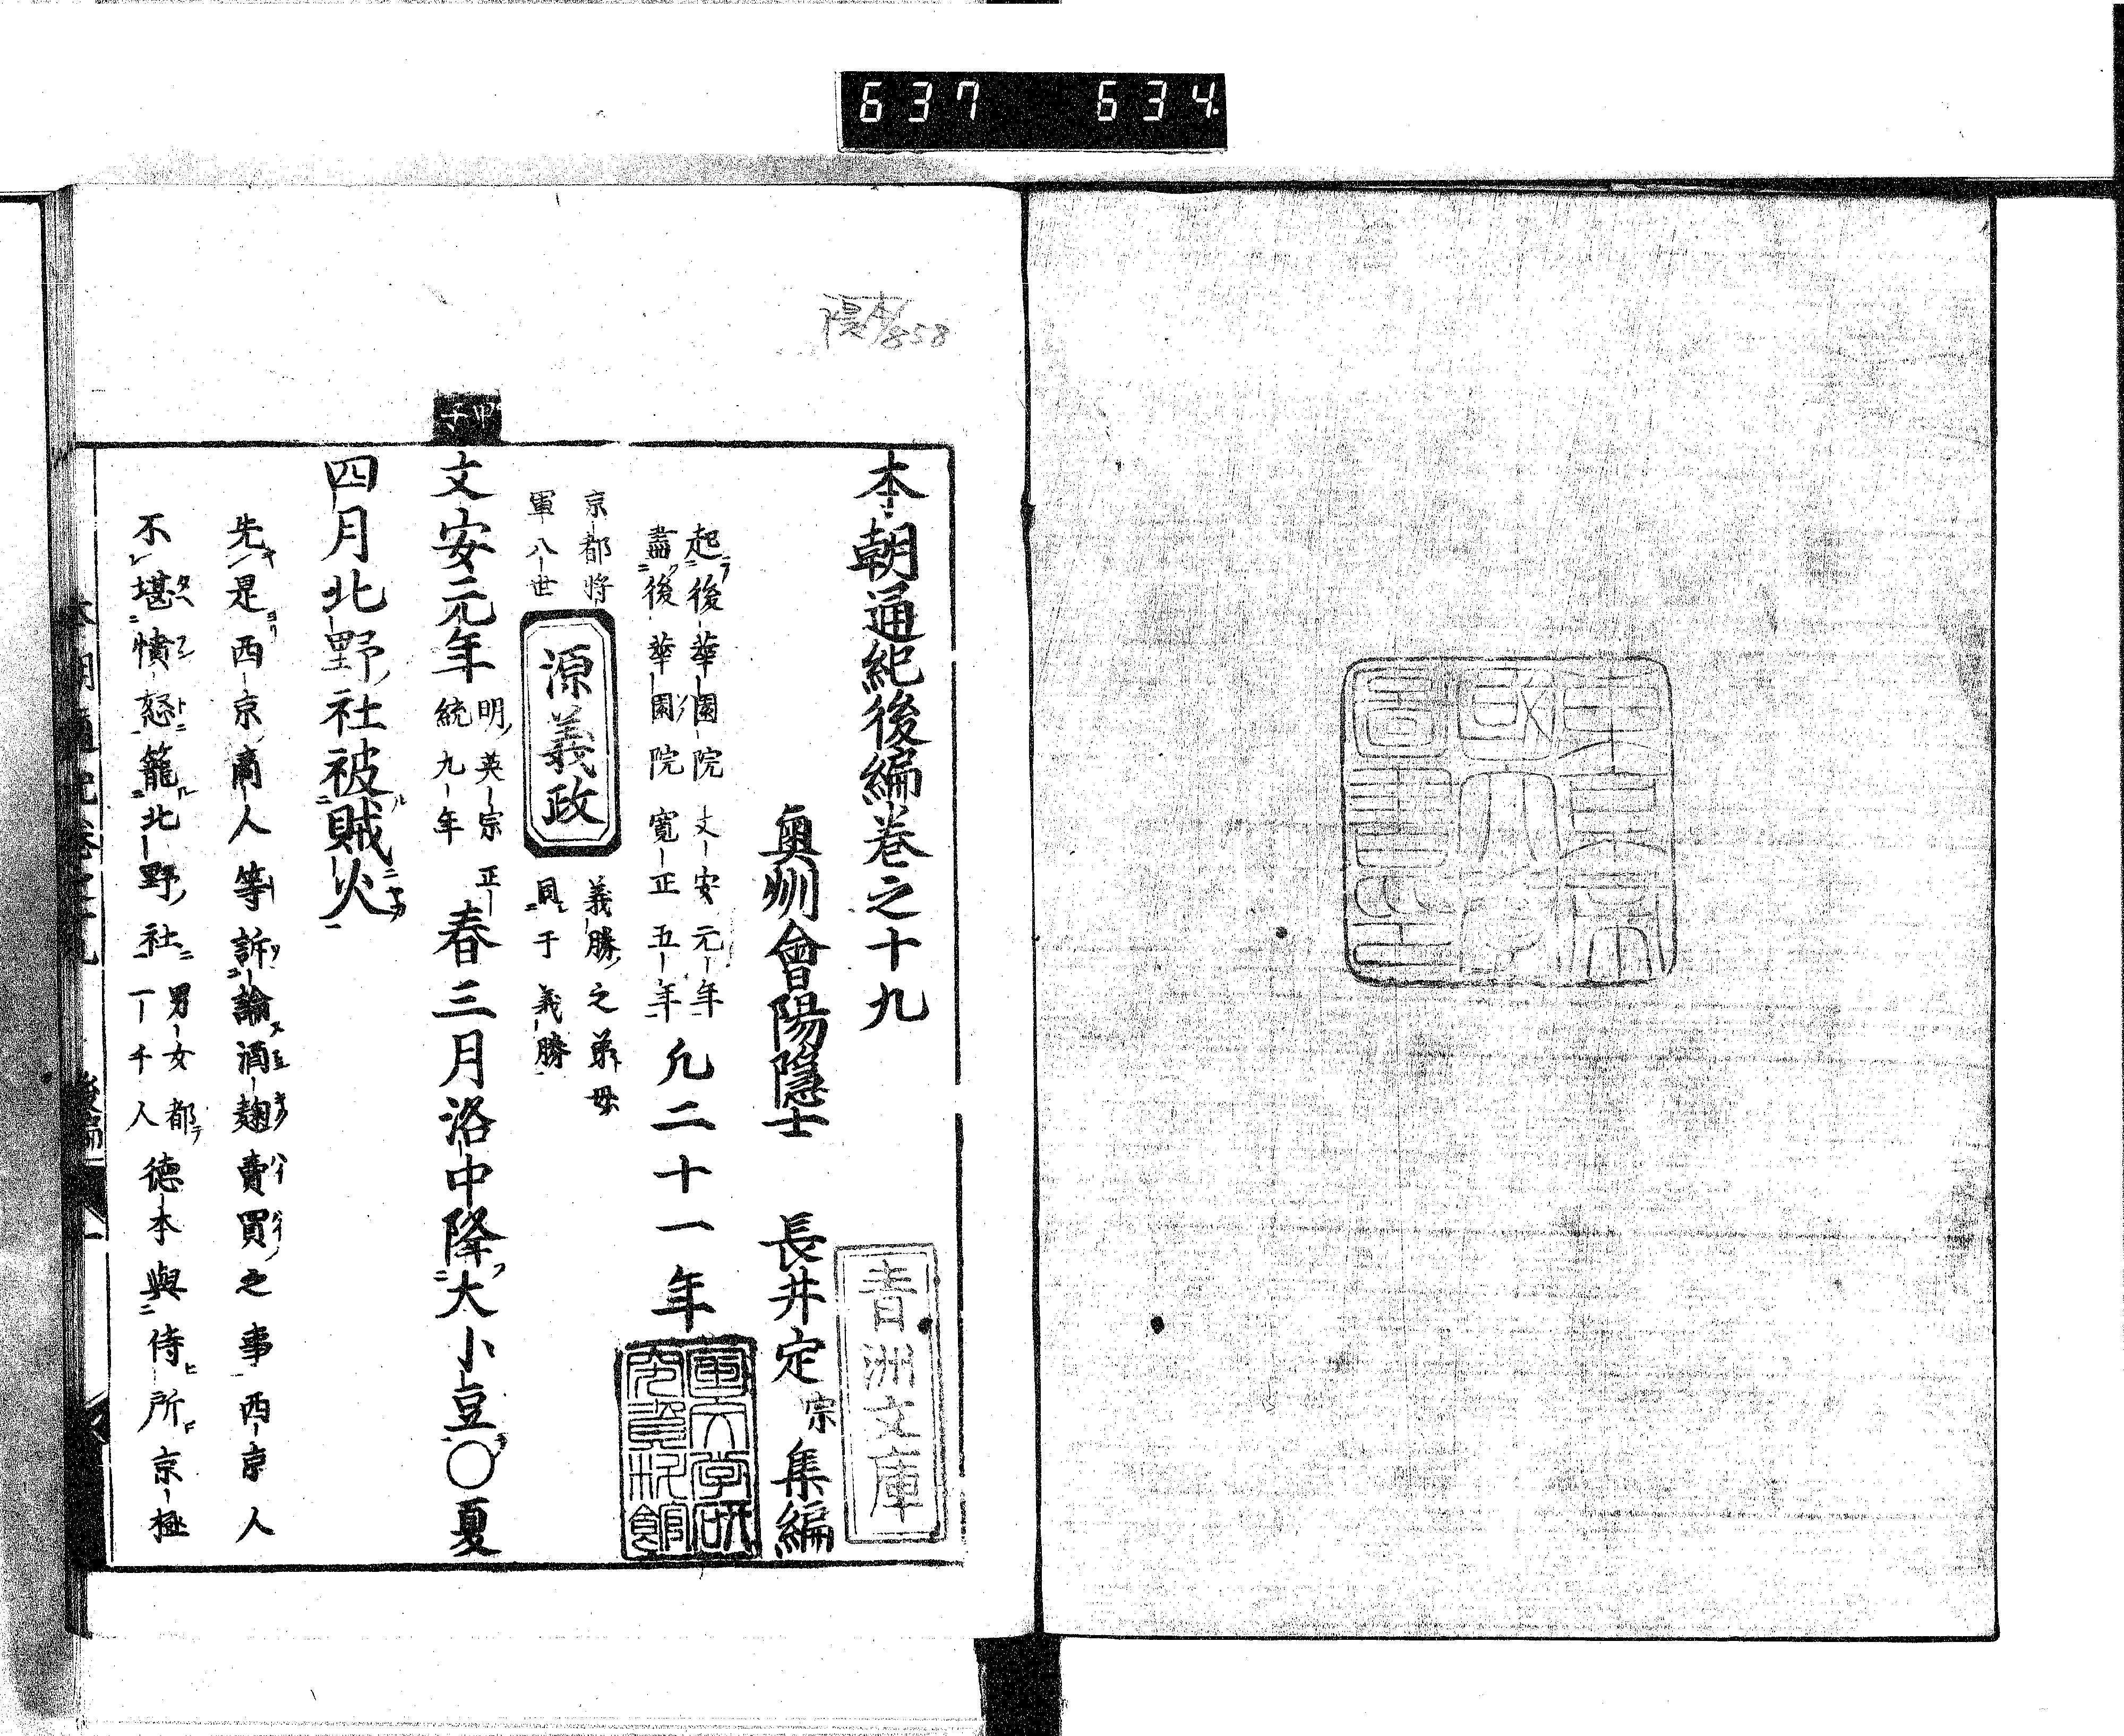 637 634
東京帝
國大學
圖書印
858
本朝通紀後編卷之十九
奥州會陽隱士 長井定宗集編
青洲文庫
起後華園院文安元年
盡後華園院寛正五年
凢二十一年
京都將
軍八世
源義政
義勝之弟母
同于義勝
甲子
文安元年
明英宗正
統九年
春三月洛中降大小豆〇夏
四月北野社被賊火
先是西京商人等訴論酒麹賣買之事西京人
不堪憤怒籠北野社
男女都
一千人
德本與侍所京極